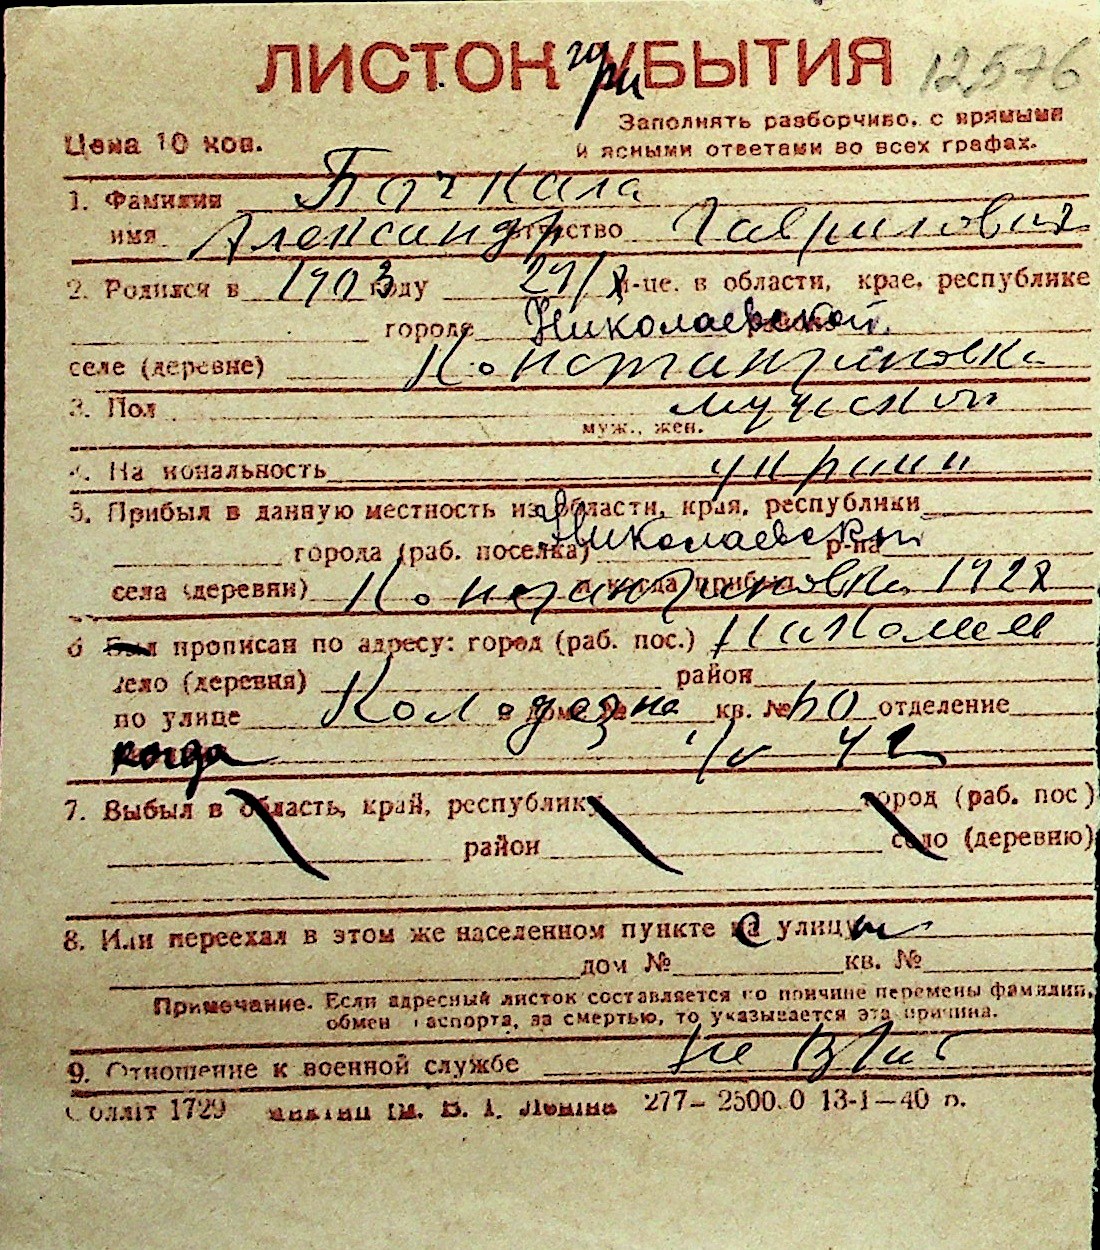 ЛИСТОК при УБЫТИЯ 12576
Цена 10 коп.
Заполнять разборчиво, с прямыми
и ясными ответами во всех графах.
1. Фамилия Бочкала
имя Александр отчество Гаврилович
2. Родился в 1903 году 29/X м-це, в области, крае, республике
городе Николаевской
селе (деревне) Константиновке
3. Пол мужской
муж., жен.
4. Национальность украин
5. Прибыл в данную местность из области, края, республики
города (раб. поселка) Николаевский р-на
села (деревни) Константиновка и когда прибыл 1928
6 Был прописан по адресу: город (раб. пос.) Николаев
село (деревня) район
по улице Колодезна в доме № кв. № 60 отделение
когда 42
7. Выбыл в область, край, республику город (раб. пос)
район село (деревню)
8. Или переехал в этом же населенном пункте на улицу
дом № кв. №
Примечание. Если адресный листок составляется по причине перемены фамилии,
обмен паспорта, за смертью, то указывается эта причина.
9. Отношение к военной службе
Облліт 1729 ім. В. І. Леніна 277— 2500.0 13-1—40 р.